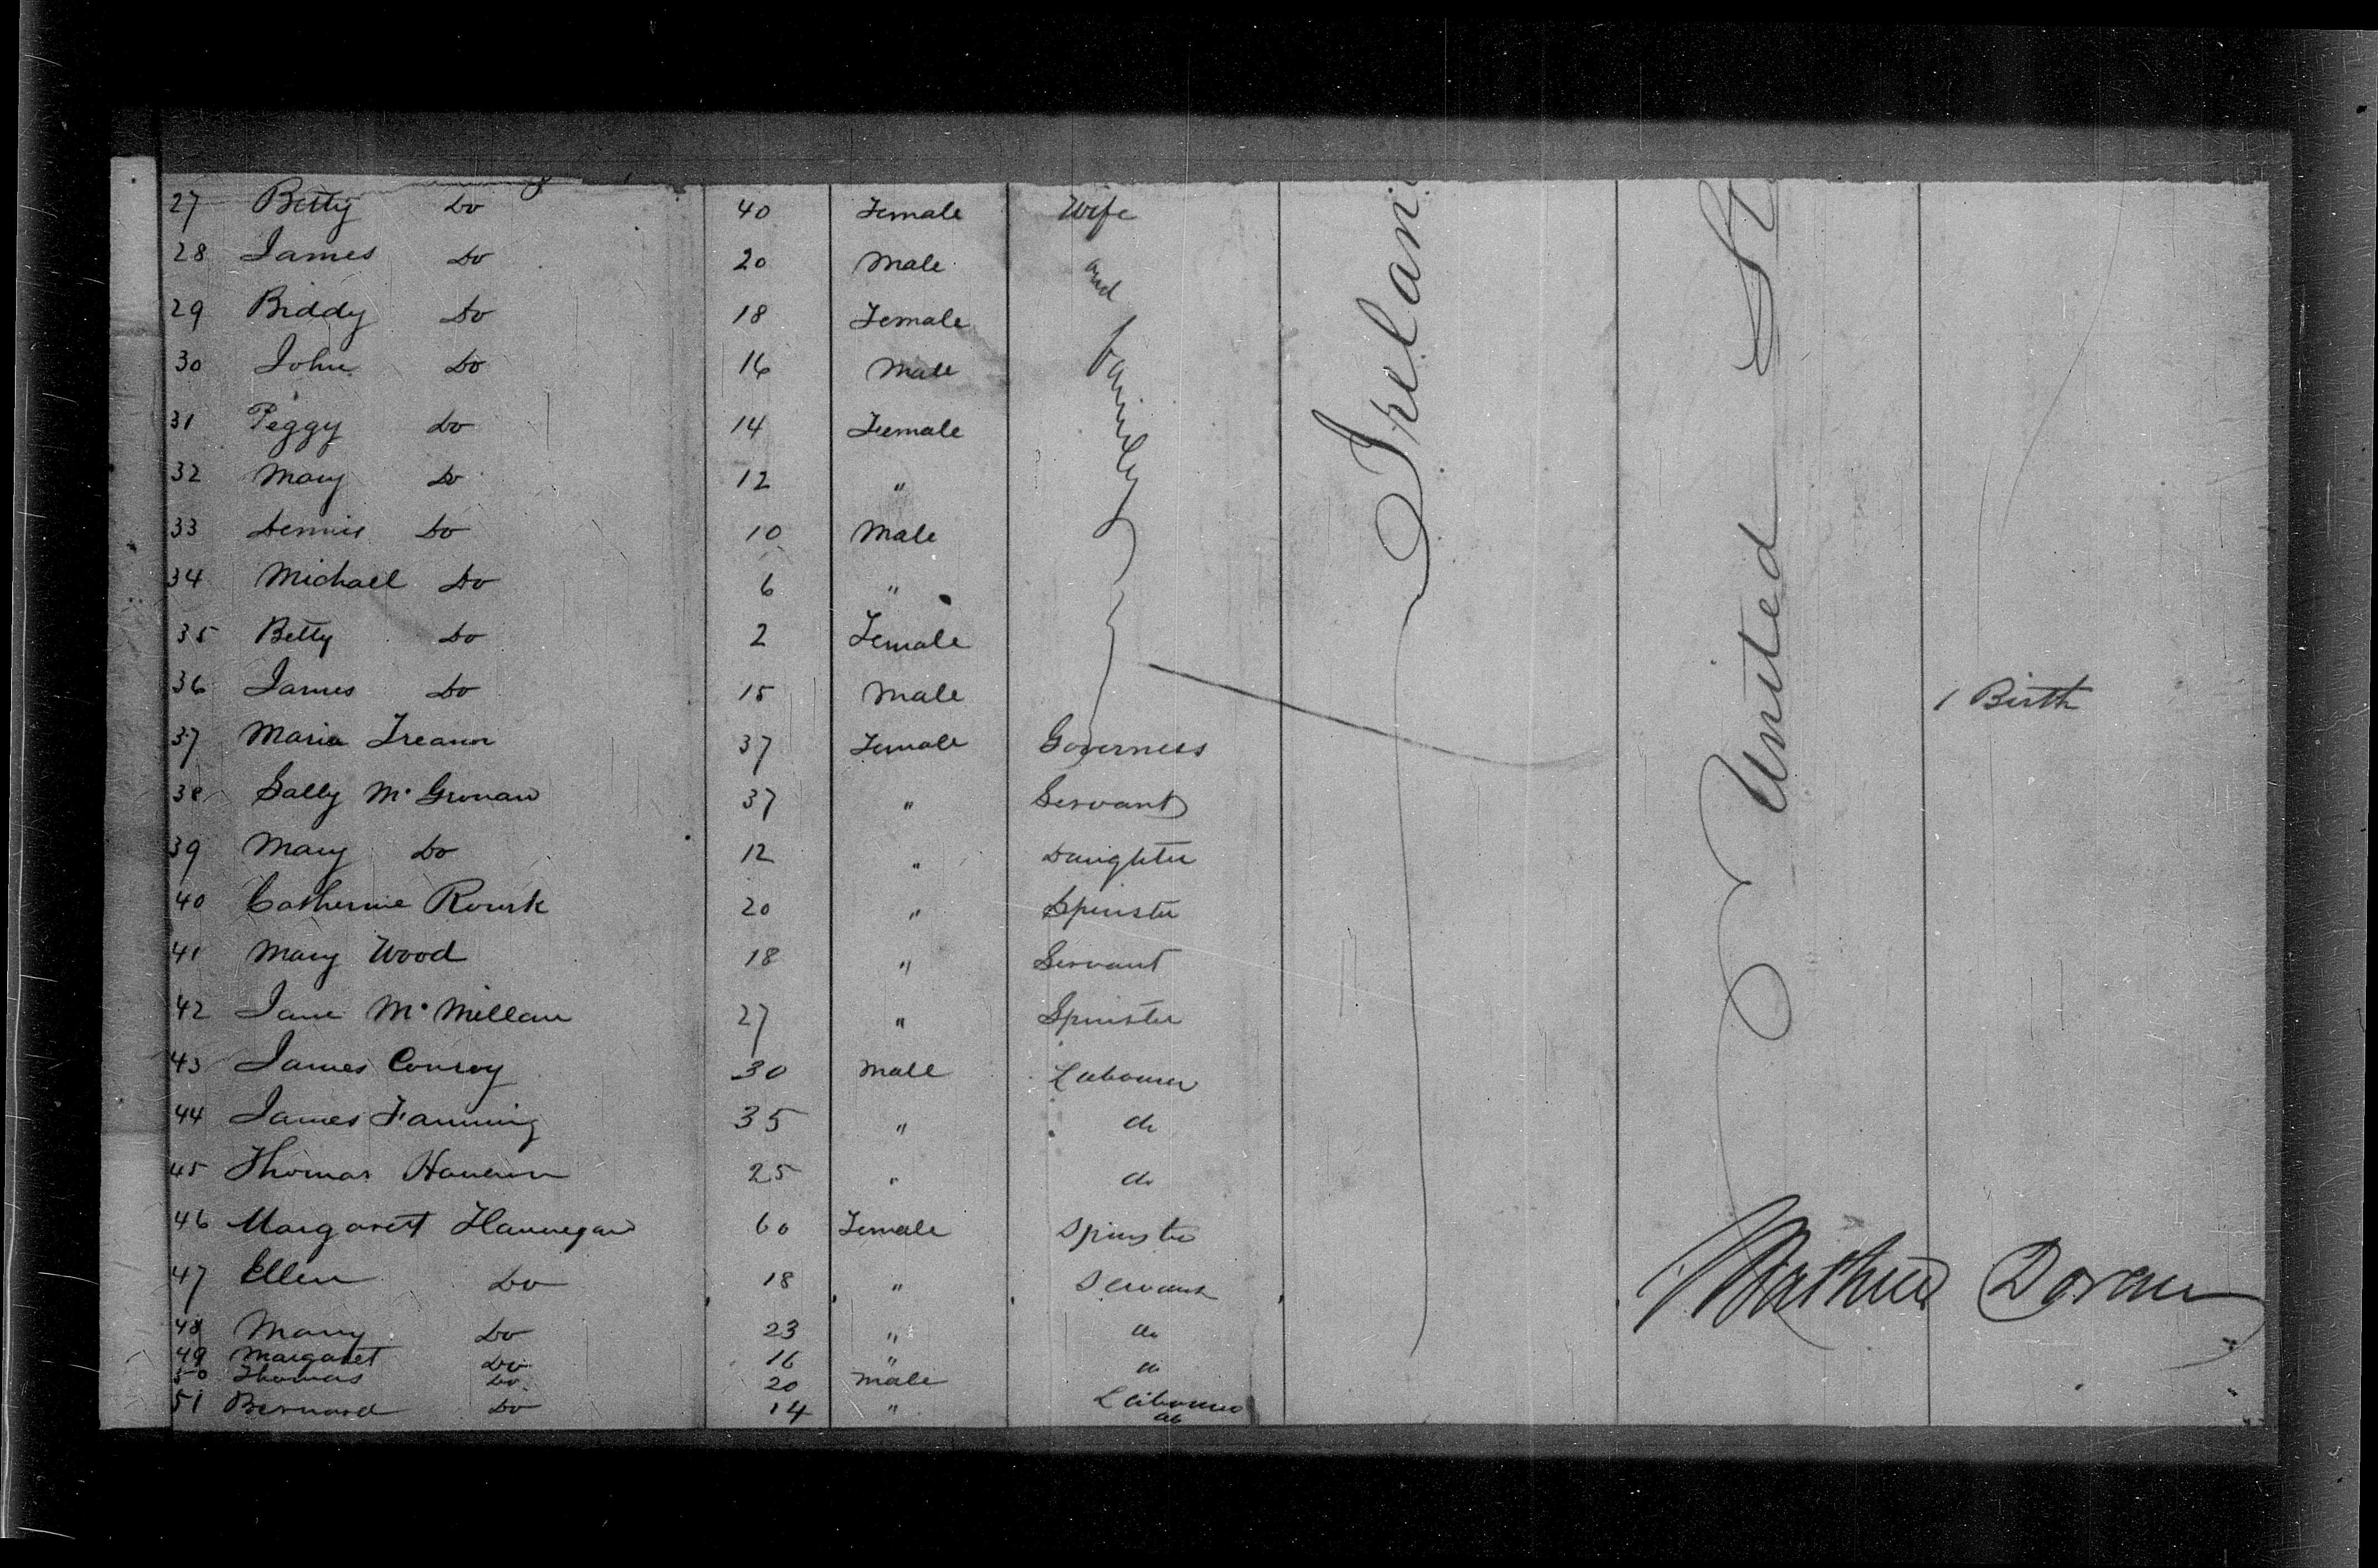 27 Betty Do 40 Female Wife
28 James Do 20 Male and
29 Biddy Do 18 Female family
30 John Do 16 Male
31 Peggy Do 14 Feemale
32 Mary Do 12 "
33 Dennis Do 10 Male
34 Michael Do 6 "
35 Betty Do 2 Female
36 James Do 15 Male 1 Birth
37 Maria Treanor 37 Female Governess
38 Sally Mc 37 " Servant
39 Mary Do 12 " Daughter
40 Catherine Rourk 20 " Spinster
41 Mary Wood 18 " Servant
42 Jane Mc Millan 27 " Spinster
43 James Conroy 30 Male Labourer
44 James Fanning 35 " do
45 Thomas 25 " do
46 Margarett Flannegan 60 Female Spinster
47 Ellen Do 18 " Servant
48 Mary Do 23 " do
49 Margaret Do 16 " do
50 Thomas Do 20 Male
51 Bernard Do 14 " Labourer
do
Ireland
United St
Mathew Doran